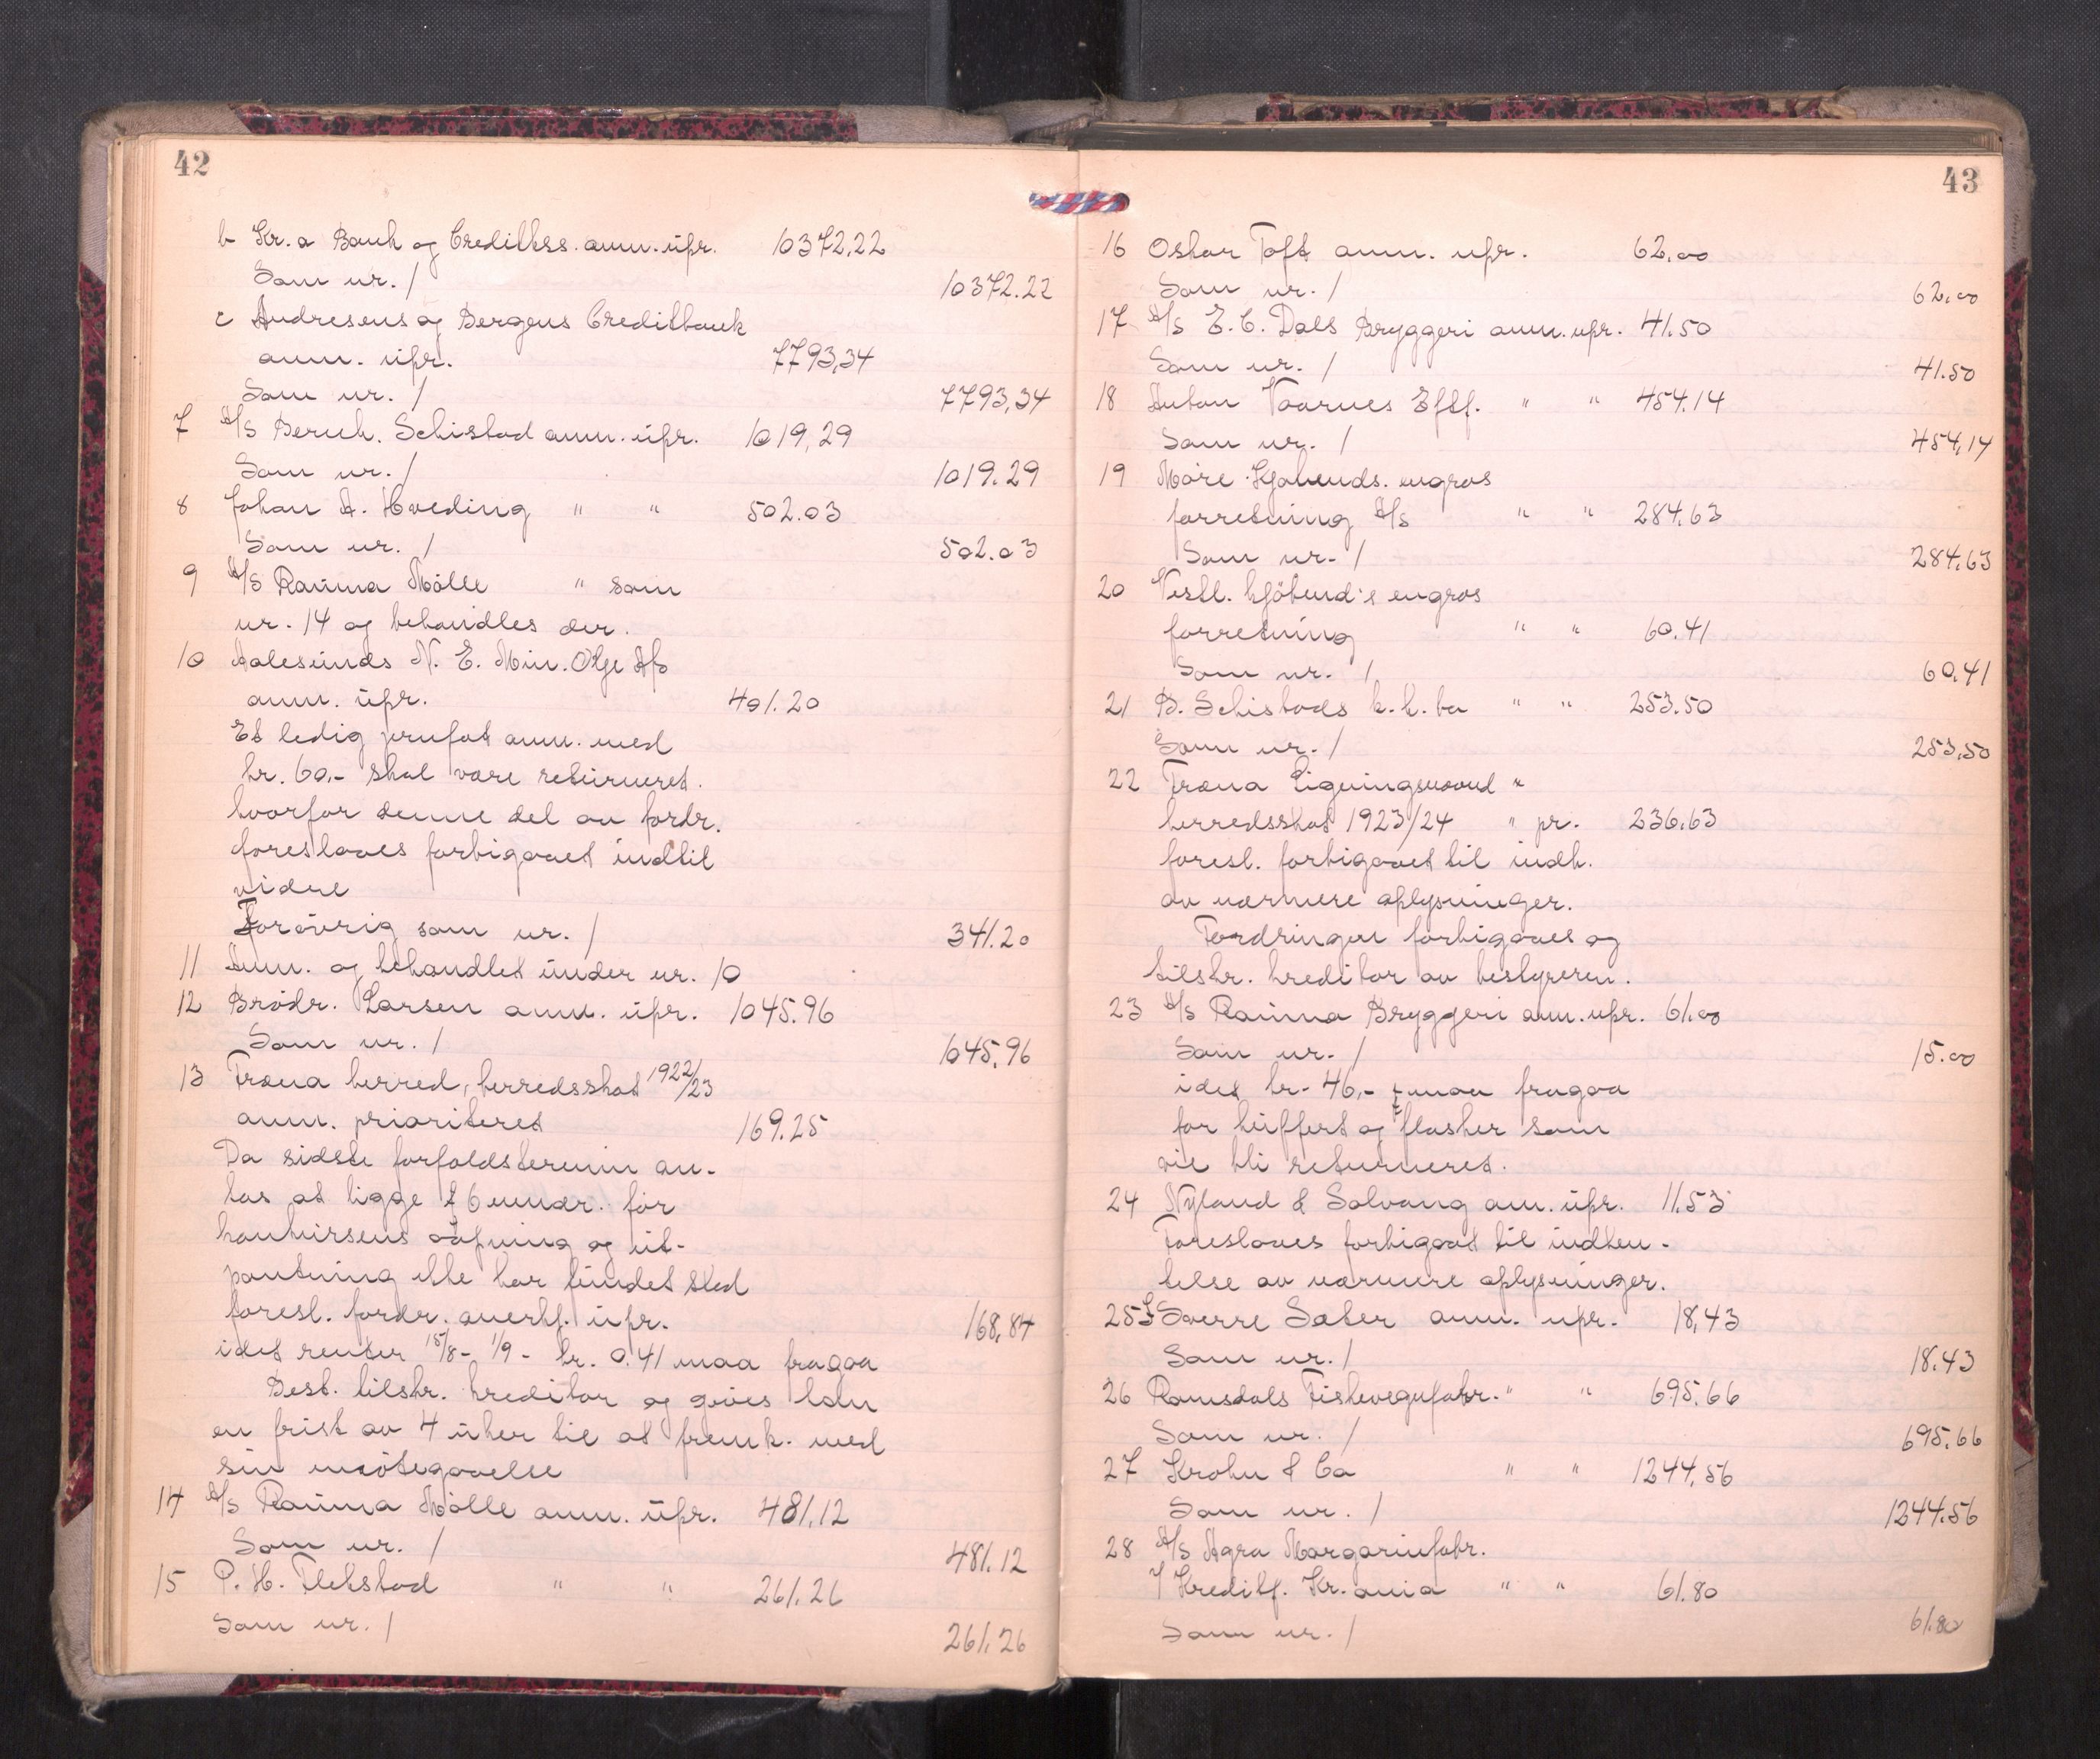 42
b Kr.a Bank og Creditkss. anm. upr. 10372,22
Som nr. 1 10372.22
c Andresens og Bergens Creditbank
anm. upr. 7793,34
Som nr. 1 7793,34
7 A/S Bernh. Schistad anm. upr. 1019,29
Som nr. 1 1019.29
8 Johan A. Hveding " " 502.03
Som nr. 1 502.03
9 A/S Rauma Mölle " som
nr. 14 og behandles der.
10 Aalesunds N. E. Min. Olje A/S
anm. upr. 401.20
Et ledig prufat anm. med
kr. 60,- skal være returneret.
hvorfor denne del av fordr.
foreslaaes forbigaaet indtil
videre
Forövrig som nr. 1 341.20
11 Anm. og behandlet under nr. 10
12 Brödr. Larsen anm. upr. 1045.96
Som nr. 1 1045.96
13 Træna herred, herredsskat 1922/23
anm. prioriteret 169.25
Da sidste forfaldstermin an-
tas at ligge 6 mndr. för
konkursens aapning og ut-
pantning ikke har fundet sted
foresl. fordr. anerkj. upr. 168,84
idet renter 15/8 - 1/9 - kr. 0.41 maa fragaa
Best. tilskr. kreditor og gives
en frist av 4 uker til at fremk. med
sin imötegaaelse
14 A/S Rauma Mölle anm. upr. 481.12
Som nr. 1 481.12
15 P. H. Flekstad " " 261.26
Som nr. 1 261.26
43
16 Oskar Toft anm. upr. 62.00
Som nr. 1 62.00
17 A/S E. C. Dals Bryggeri anm. upr. 41.50
Som nr. 1 41.50
18 Anton Vaarnes Eftf. " " 454.14
Som nr. 1 454,14
19 Möre Kjöbmds. engros
forretning A/S " " 284.63
Som nr. 1 284.63
20 Vestl. kjöbmd's engros
forretning " " 60.41
Som nr. 1 60.41
21 B. Schistads k.k. bo " " 253.50
Som nr. 1 253,50
22 Træna Ligningsnævnd "
herredsskat 1923/24 " pr. 236.63
foresl. forbigaaet til indh.
av nærmere oplysninger.
Fordringen forbigaaes og
tilskr. kreditor av bestyreren.
23 A/S Rauma Bryggeri anm. upr. 61.00
Som nr. 1 15.00
idet kr. 46,- maa fragaa
for kuffert og flasker som
vil bli returneret.
24 Nyland & Solvang anm. upr. 11.53
Foreslaaes forbigaat til indhen-
telse av nærmere oplysninger.
25 Sverre Sæter anm. upr. 18,43
Som nr. 1 18.43
26 Ramsdals Fiskevegnfabr. " " 695.66
Som nr. 1 695.66
27 Krohn & Co " " 1244.56
Som nr. 1 1244.56
28 A/S Agra Margarinfabr.
v/ Kreditf. Kr.ania " " 61.80
Som nr. 1 61.80